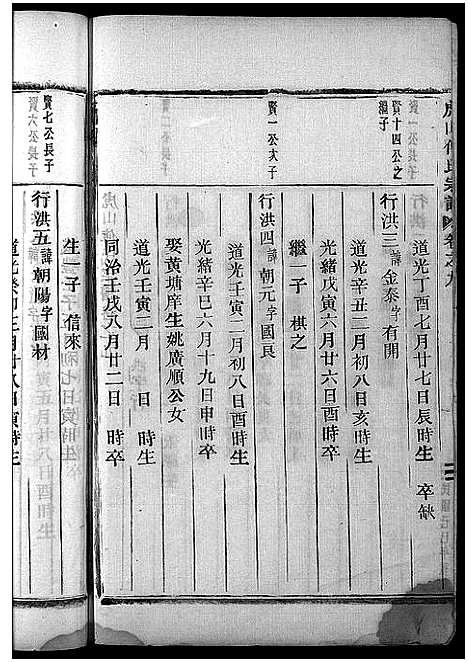 虎山何氏宗譜 卷之九
道光丁酉七月廿七日辰時生 卒缺
賢十四公之繼子
行洪三 諱 金泰 字 有開
道光辛丑二月初八日亥時生
光緒戊寅六月廿六日酉時卒
繼一子 棋之
賢一公次子
行洪四 諱 朝元 字 國良
道光壬寅二月初八日酉時生
光緒辛巳六月十九日申時卒
娶黃塘庠生姚廣順公女
道光壬寅二月 日 時生
同治壬戌八月廿二日 時卒
生一子 信來
賢七公長子
行洪五 諱 朝陽 字 國材